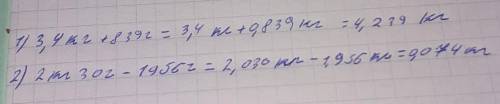 1) 3,4 кг + 839 г = 3,4 кг + 0,839 кг = 4,239 кг
2) 2 кг 30 г - 1956 г = 2,030 кг - 1,956 кг = 0,074 кг